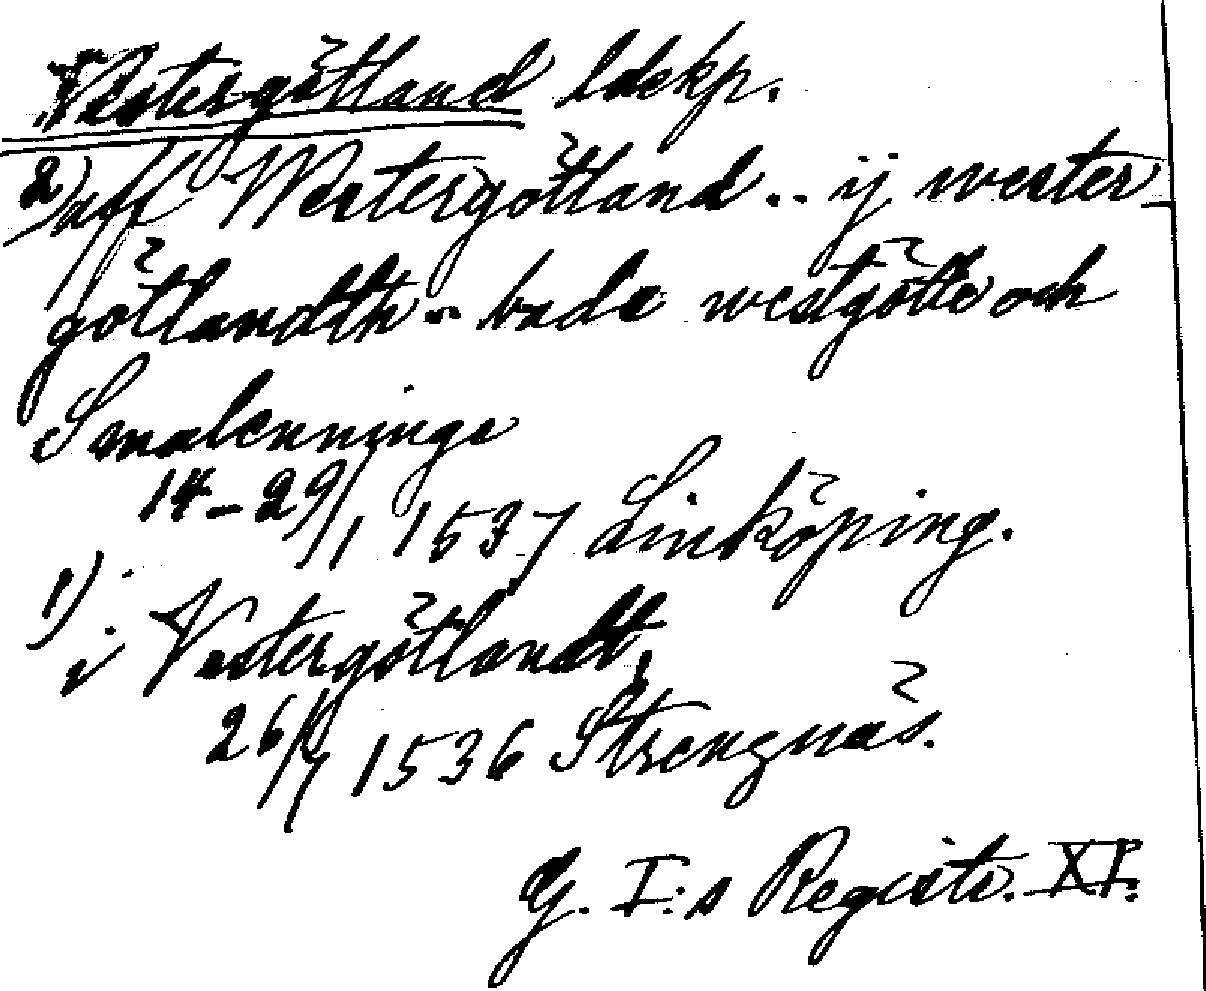 Vestergötland ldskp.
2) aff Westergötland .. ij wester-
götlandth .. bade westgötte och
Smalenninge
14-29/1 1537 Linköping.
1) i Vestergötlandt,
26/7 1536 Strengnäs.
G. I:s Registr. XI.